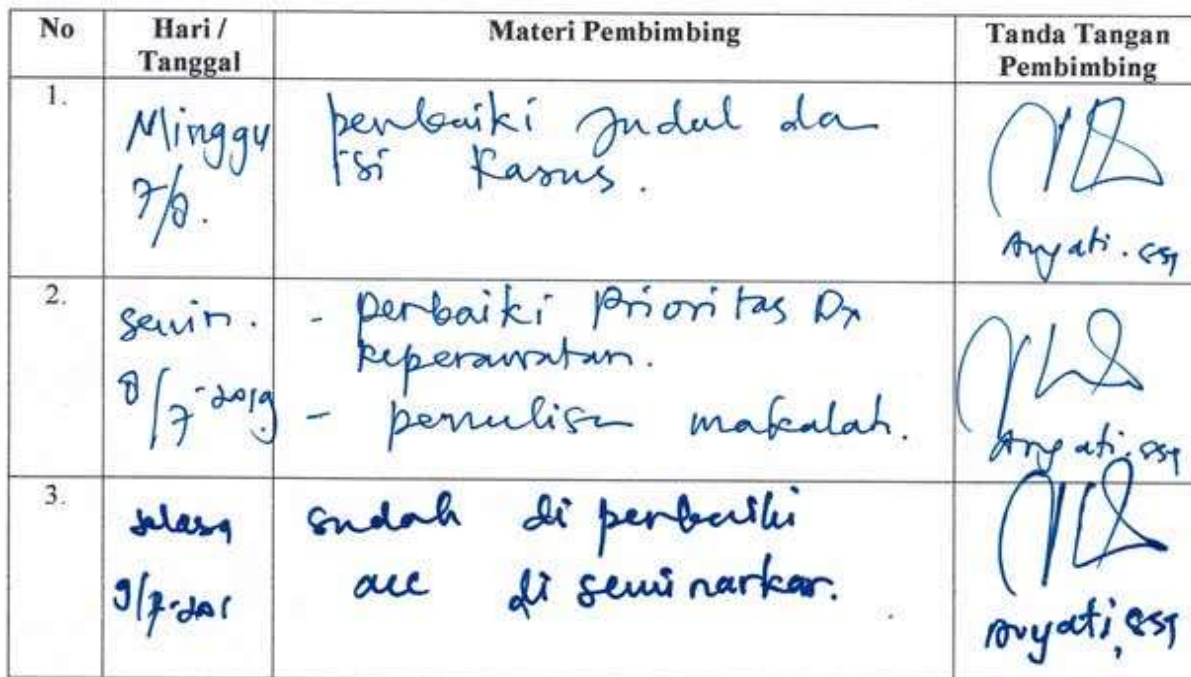 No Hari / Tanggal Materi Pembimbing Tanda Tangan Pembimbing
1.
Minggu
7/8.
perbaiki Judul da
isi Kasus.
Aryati. SST
2.
Senin.
8/7-2019
- perbaiki Prioritas Dx
keperawatan.
- penulisan makalah.
Aryati. SST
3.
Selasa
9/7-201
sudah di perbaiki
acc di seminarkan.
Aryati, SST